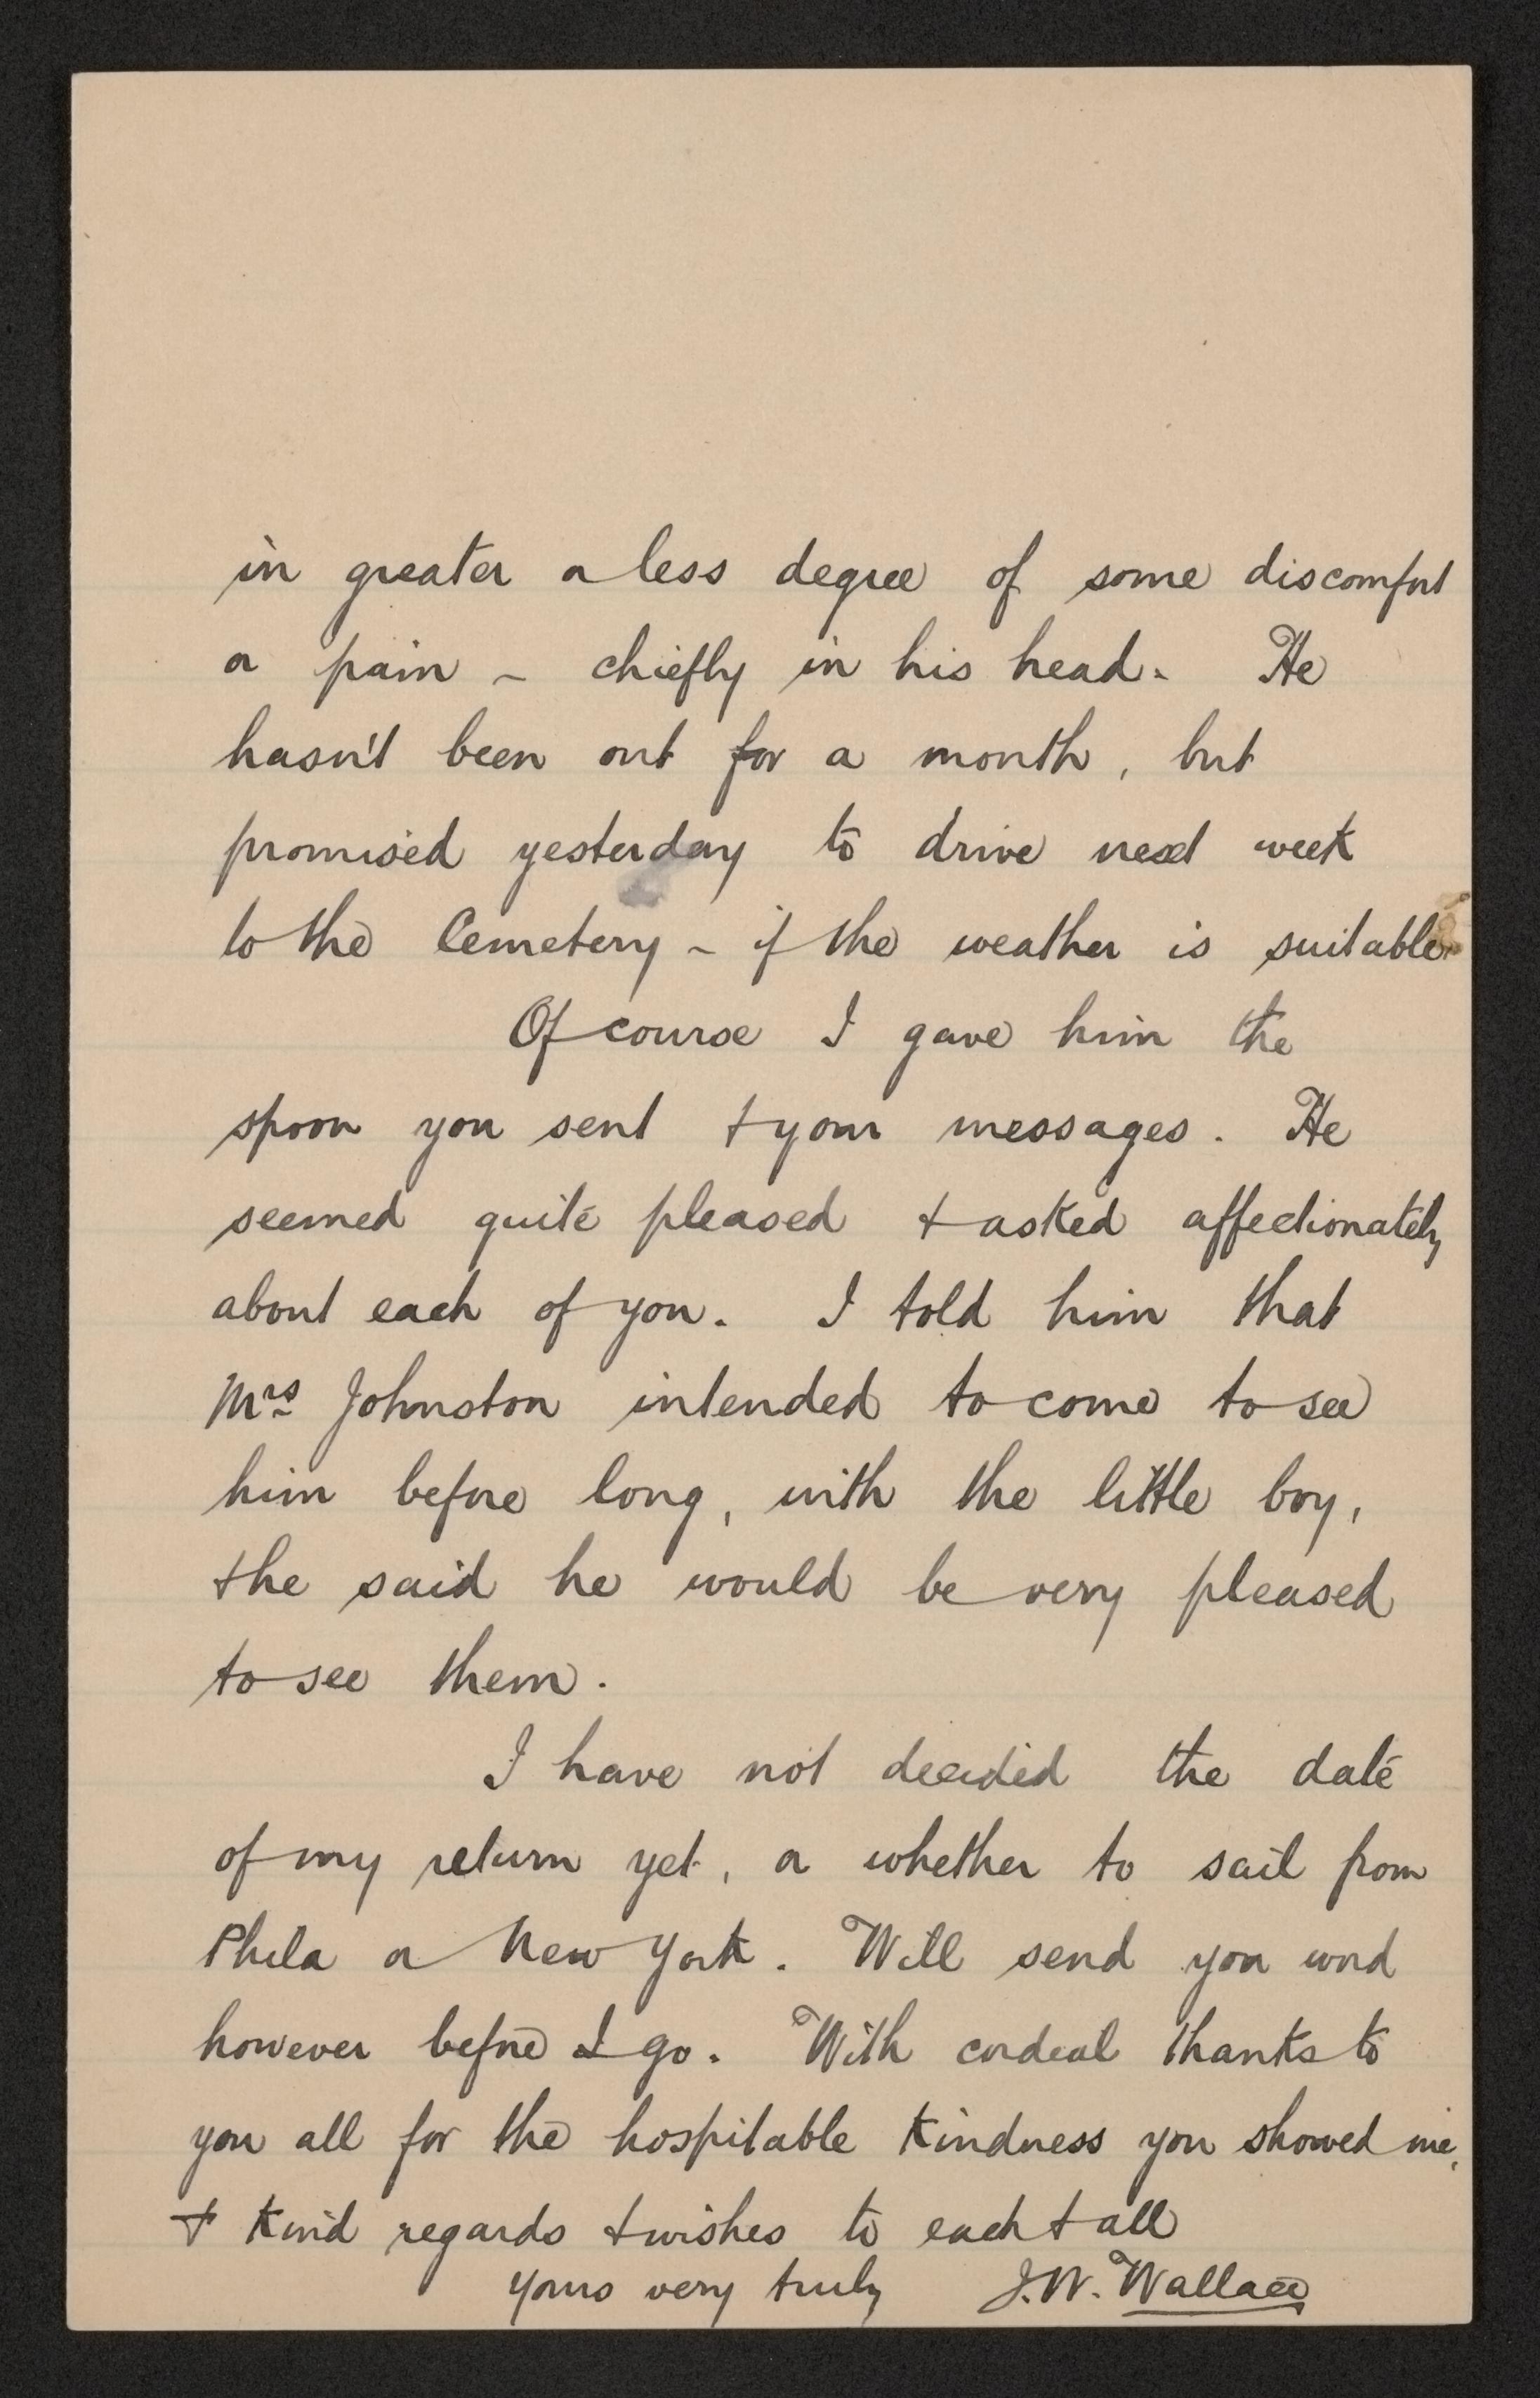 in greater or less degree of some discomfort
or pain – chiefly in his head. He
hasn't been out for a month, but
promised yesterday to drive next week
to the Cemetery – if the weather is suitable.
Of course I gave him the
spoon you sent & your messages. He
seemed quite pleased & asked affectionately
about each of you. I told him that
Mrs Johnston intended to come to see
him before long, with the little boy,
& he said he would be very pleased
to see them.
I have not decided the date
of my return yet, or whether to sail from
Phila or New York. Will send you word
however before I go. With cordial thanks to
you all for the hospitable kindness you showed me,
& kind regards & wishes to each & all
Yours very truly J.W. Wallace